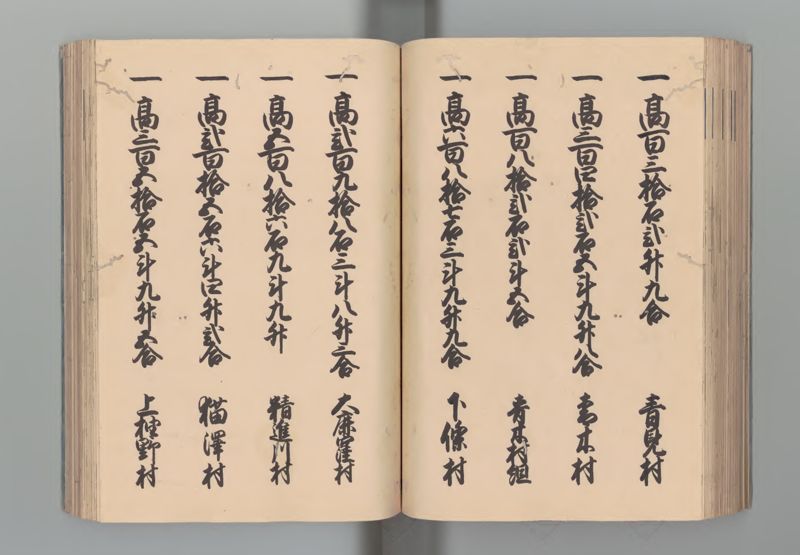 一 高百三拾石弐升九合 青見村
一 高三百四拾弐石五斗九升八合 青木村
一 高百八拾弐石弐斗五合 青木村組
一 高六百八拾七石三斗九升九合 下條村
一 高弐百九拾八石三斗八升三合 大鹿窪村
一 高五百八拾六石九斗九升 精進川村
一 高弐百拾五石六斗四升弐合 猫澤村
一 高三百五拾石五斗九升五合 上柚野村